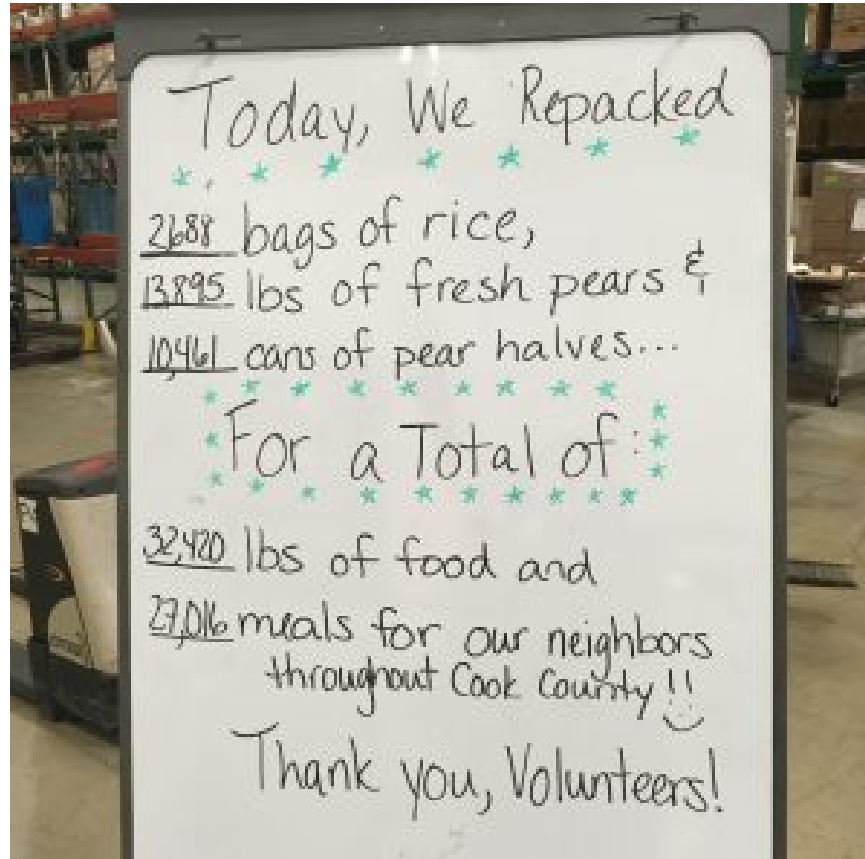 Today, We Repacked
2688 bags of rice,
13,895 lbs of fresh pears &
10,461 cans of pear halves...
For a Total of:
32,420 lbs of food and
27,016 meals for our neighbors
throughout Cook County!!
Thank you, Volunteers!